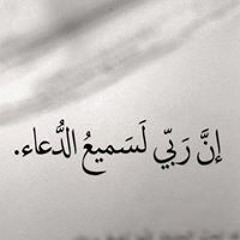 إنَّ رَبّي لَسَميعُ الدُّعاء.